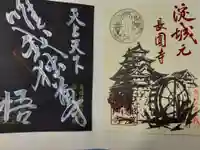 淀城元
長圓寺
天上天下
唯我独尊
悟